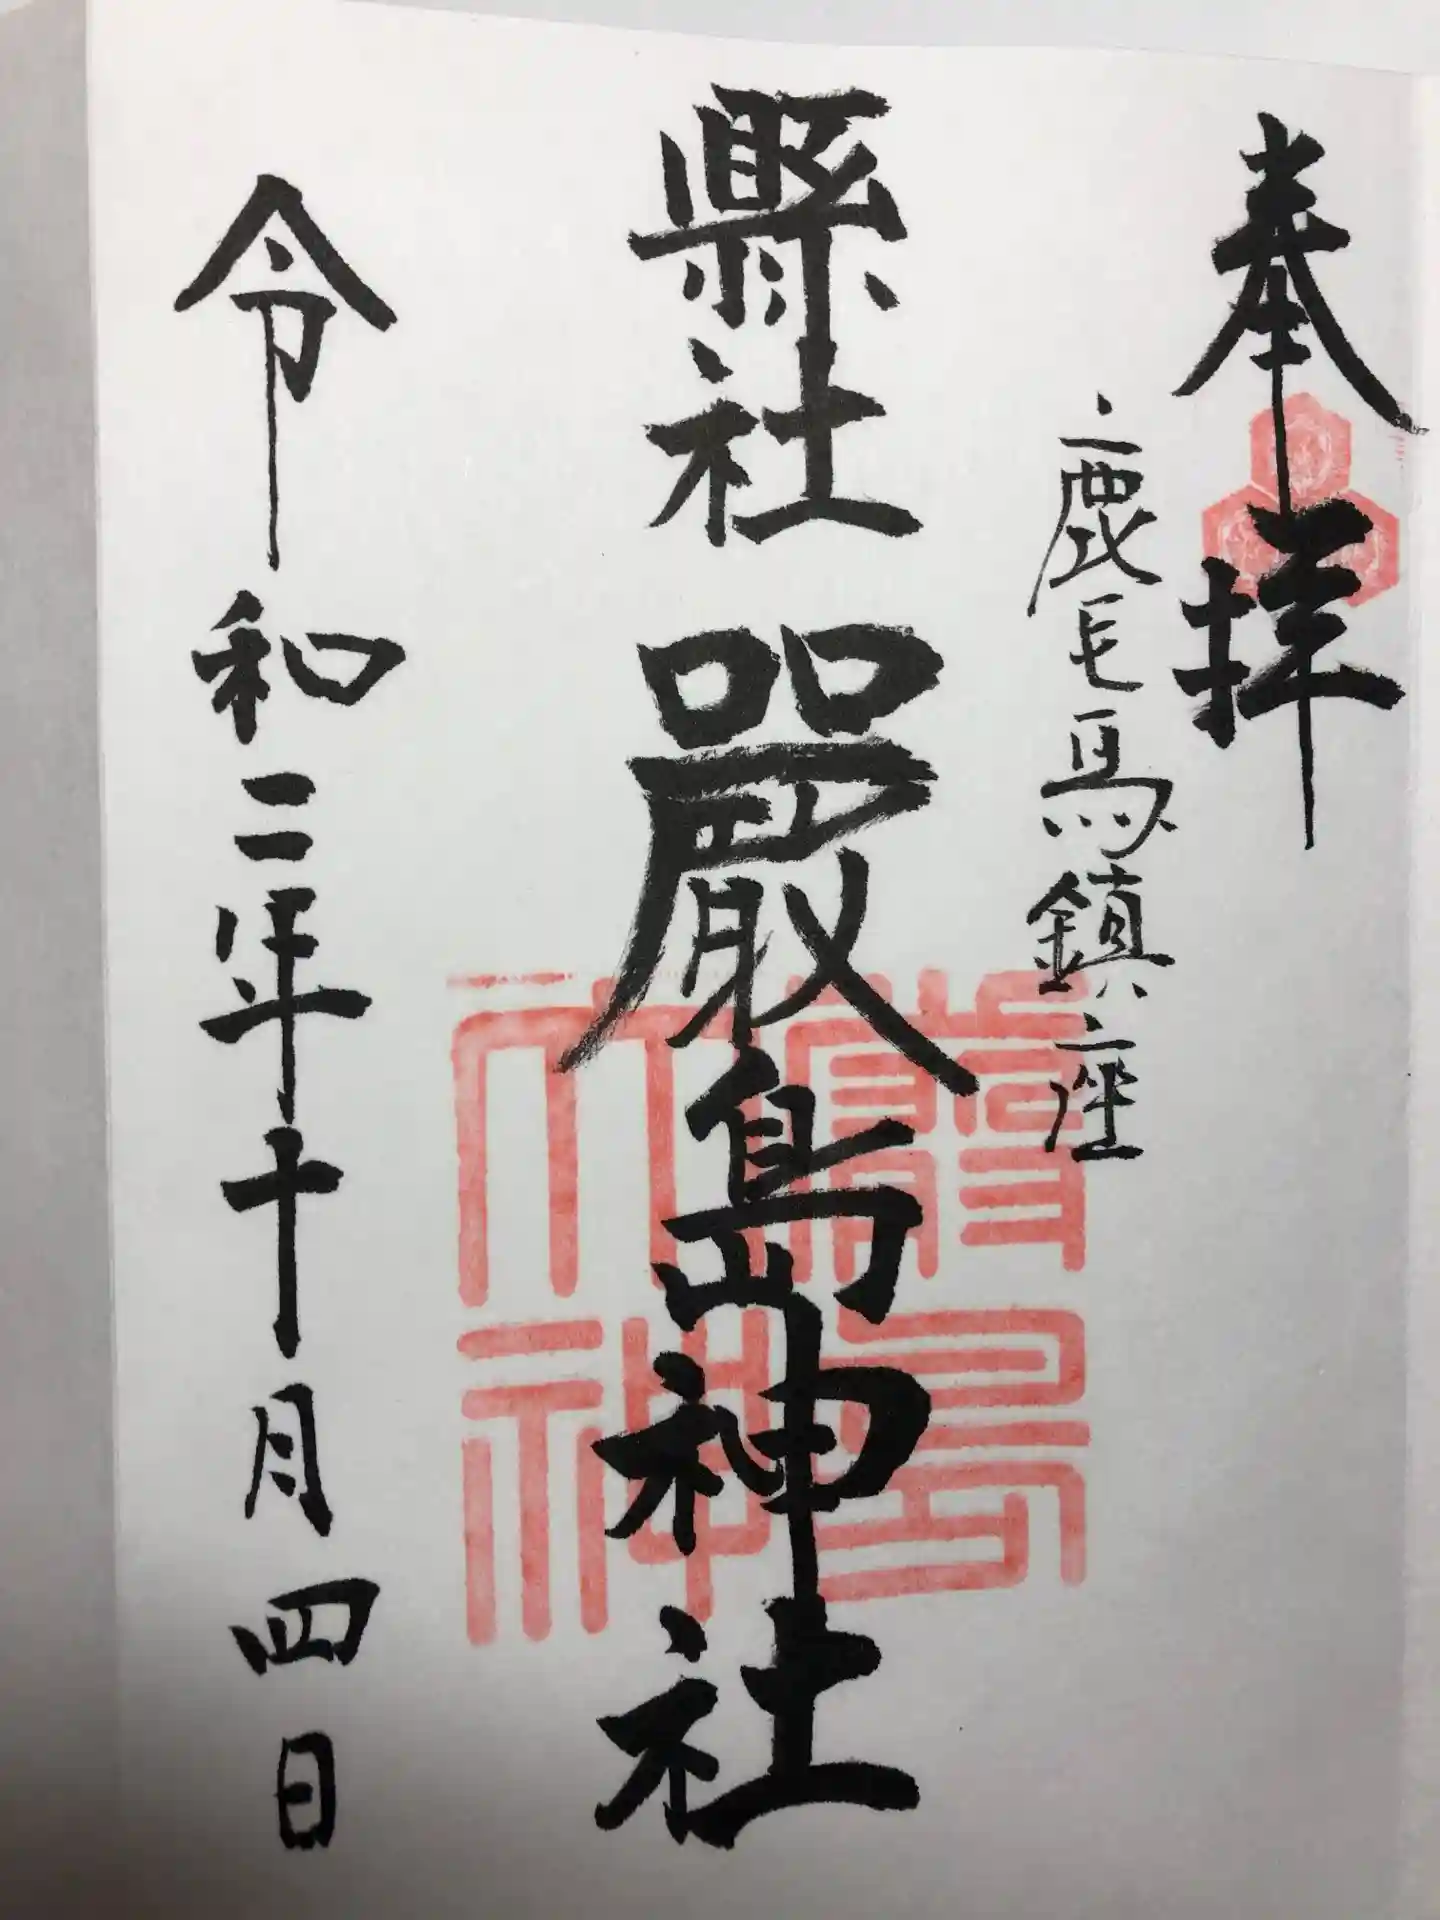 奉拝
鹿毛馬鎮座
縣社 嚴島神社
令和二年十月四日
嚴島神社